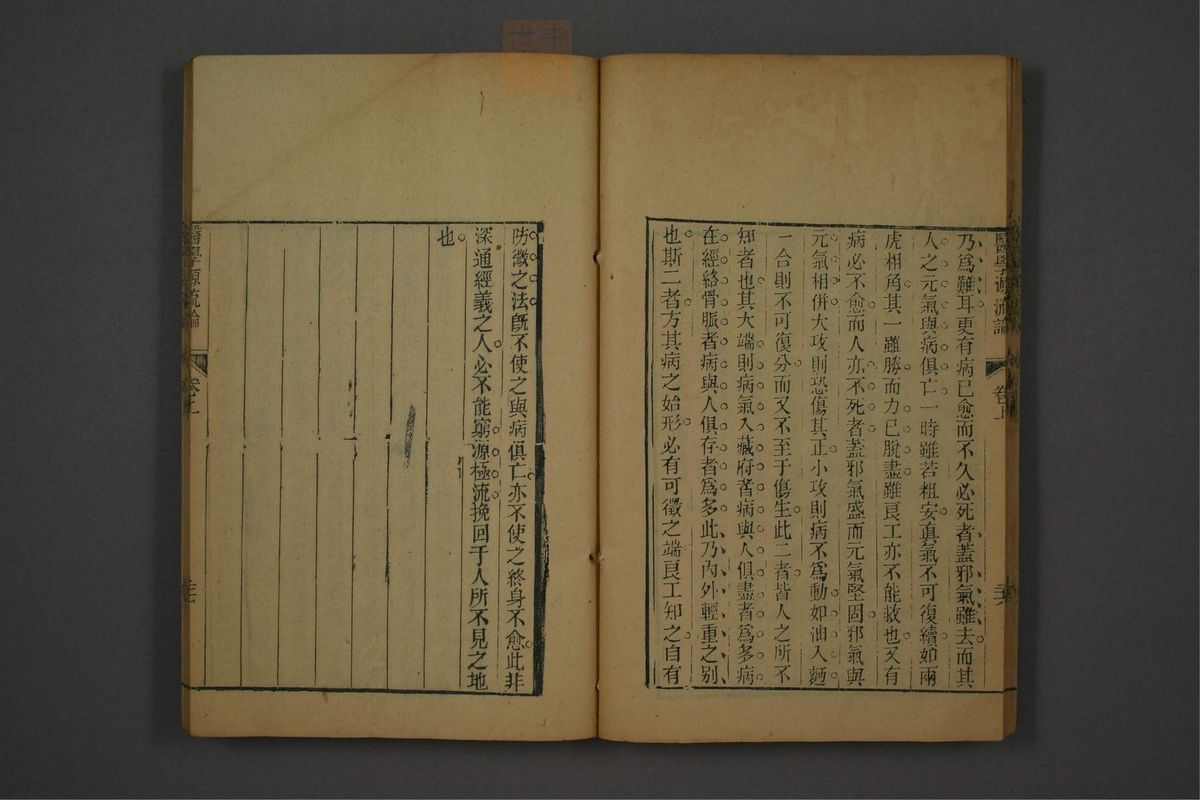 乃爲難耳更有病已愈而不久必死者蓋邪氣雖去而其
人之元氣與病俱亡一時雖若粗安真氣不可復續如兩
虎相角其一雖勝而力已脫盡雖良工亦不能救也又有
病必不愈而人亦不死者蓋邪氣盛而元氣堅固邪氣與
元氣相併大攻則恐傷其正小攻則病不爲動如油入麵
一合則不可復分而又不至于傷生此二者皆人之所不
知者也其大端則病氣入藏府者病與人俱盡者爲多病
在經絡骨脈者病與人俱存者爲多此乃內外輕重之别
也斯二者方其病之始形必有可徵之端良工知之自有
醫學源流論
卷上
防微之法既不使之與病俱亡亦不使之終身不愈此非
深通經義之人必不能窮源極流挽回于人所不見之地
也
醫學源流論
卷上